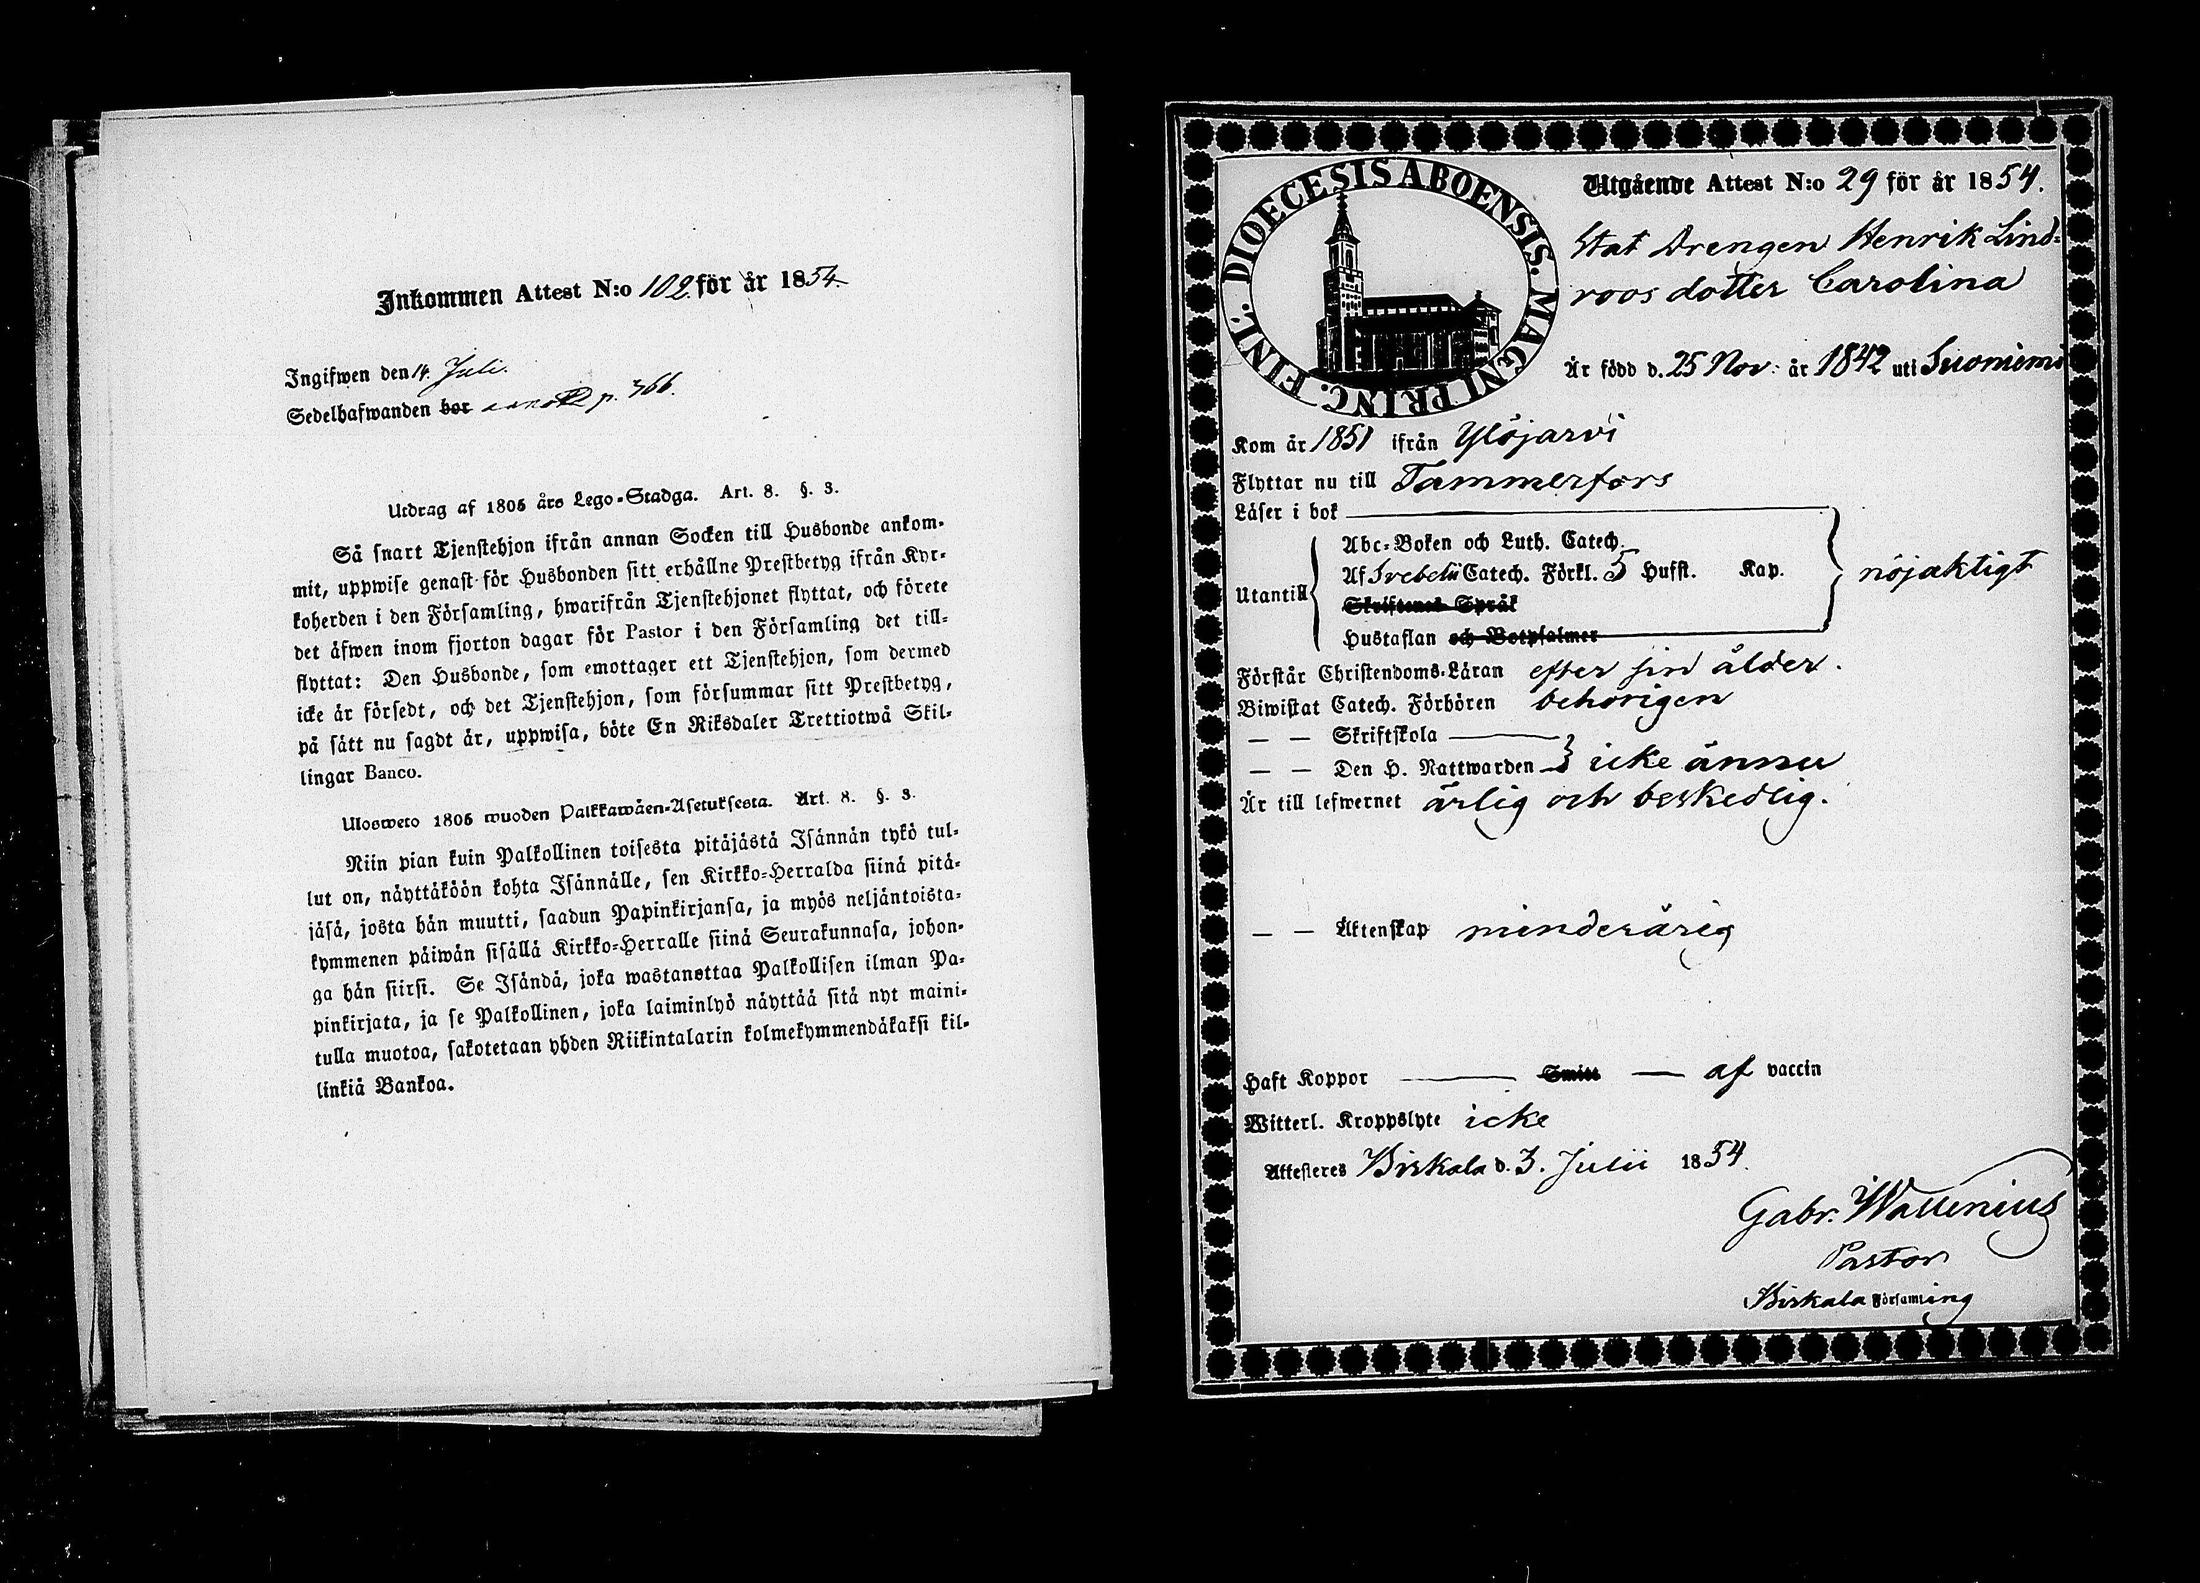 Inkommen Attest N:o 102 för år 1854
Ingifwen den 14. Juli.
Sedelhafwanden bor p. 766.
Utdrag af 1805 års Lego-Stadga. Art. 8. §. 3.
Så snart Tjenstehjon ifrån annan Socken till Husbonde ankom-
mit, uppwise genast för Husbonden sitt erhållne Prestbetyg ifrån Kyr-
koherden i den Församling, hwarifrån Tjenstehjonet flyttat, och förete
det äfwen inom fjorton dagar för Pastor i den Församling det till-
flyttat: Den Husbonde, som emottager ett Tjenstehjon, som dermed
icke är försedt, och det Tjenstehjon, som försummar sitt Prestbetyg,
på sätt nu sagdt är, uppwisa, böte En Riksdaler Trettiotwå Skil-
lingar Banco.
Ulosweto 1805 wuoden Palkkawäen-Asetuksesta. Art. 8. §. 3.
Niin pian kuin Palkollinen toisesta pitäjästä Isännän tykö tul-
lut on, näyttäköön kohta Isännälle, sen Kirkko-Herralda siinä pitä-
jäsä, josta hän muutti, saadun Papinkirjansa, ja myös neljäntoista-
kymmenen päiwän sisällä Kirkko-Herralle siinä Seurakunnasa, johon-
ga hän siirsi. Se Isändä, joka wastanottaa Palkollisen ilman Pa-
pinkirjata, ja se Palkollinen, joka laiminlyö näyttää sitä nyt maini-
tulla muotoa, sakotetaan yhden Riikintalarin kolmekymmendäkaksi kil-
linkiä Bankoa.
DIOECESIS ABOENSIS. MAGNI PRINC. FINL.
Utgående Attest N:o 29 för år 1854.
Stat Drengen Henrik Lind-
roos dotter Carolina
Är född d. 25 Nov. år 1842 uti Suoniemi
Kom år 1851 ifrån Ylöjarvi
Flyttar nu till Tammerfors
Läser i bok
Abc-Boken och Luth. Catech.
Af Svebelii Catech. Förkl. 5 Hufst. Kap. nöjaktigt
Utantill
Skriftenes Språk
Hustaflan och Botpsalmer
Förstår Christendoms-Läran efter sin ålder.
Biwistat Catech. Förhören behörigen
— — Skriftskola
— — Den H. Nattwarden icke ännu
Är till lefwernet ärlig och beskedlig.
— — Äktenskap minderårig
Haft Koppor — Smitt — af vaccin
Witterl. Kroppslyte icke
Attesteres Birkala d. 3. Julii 1854.
Gabr. Wallenius
Pastor
Birkala Församling